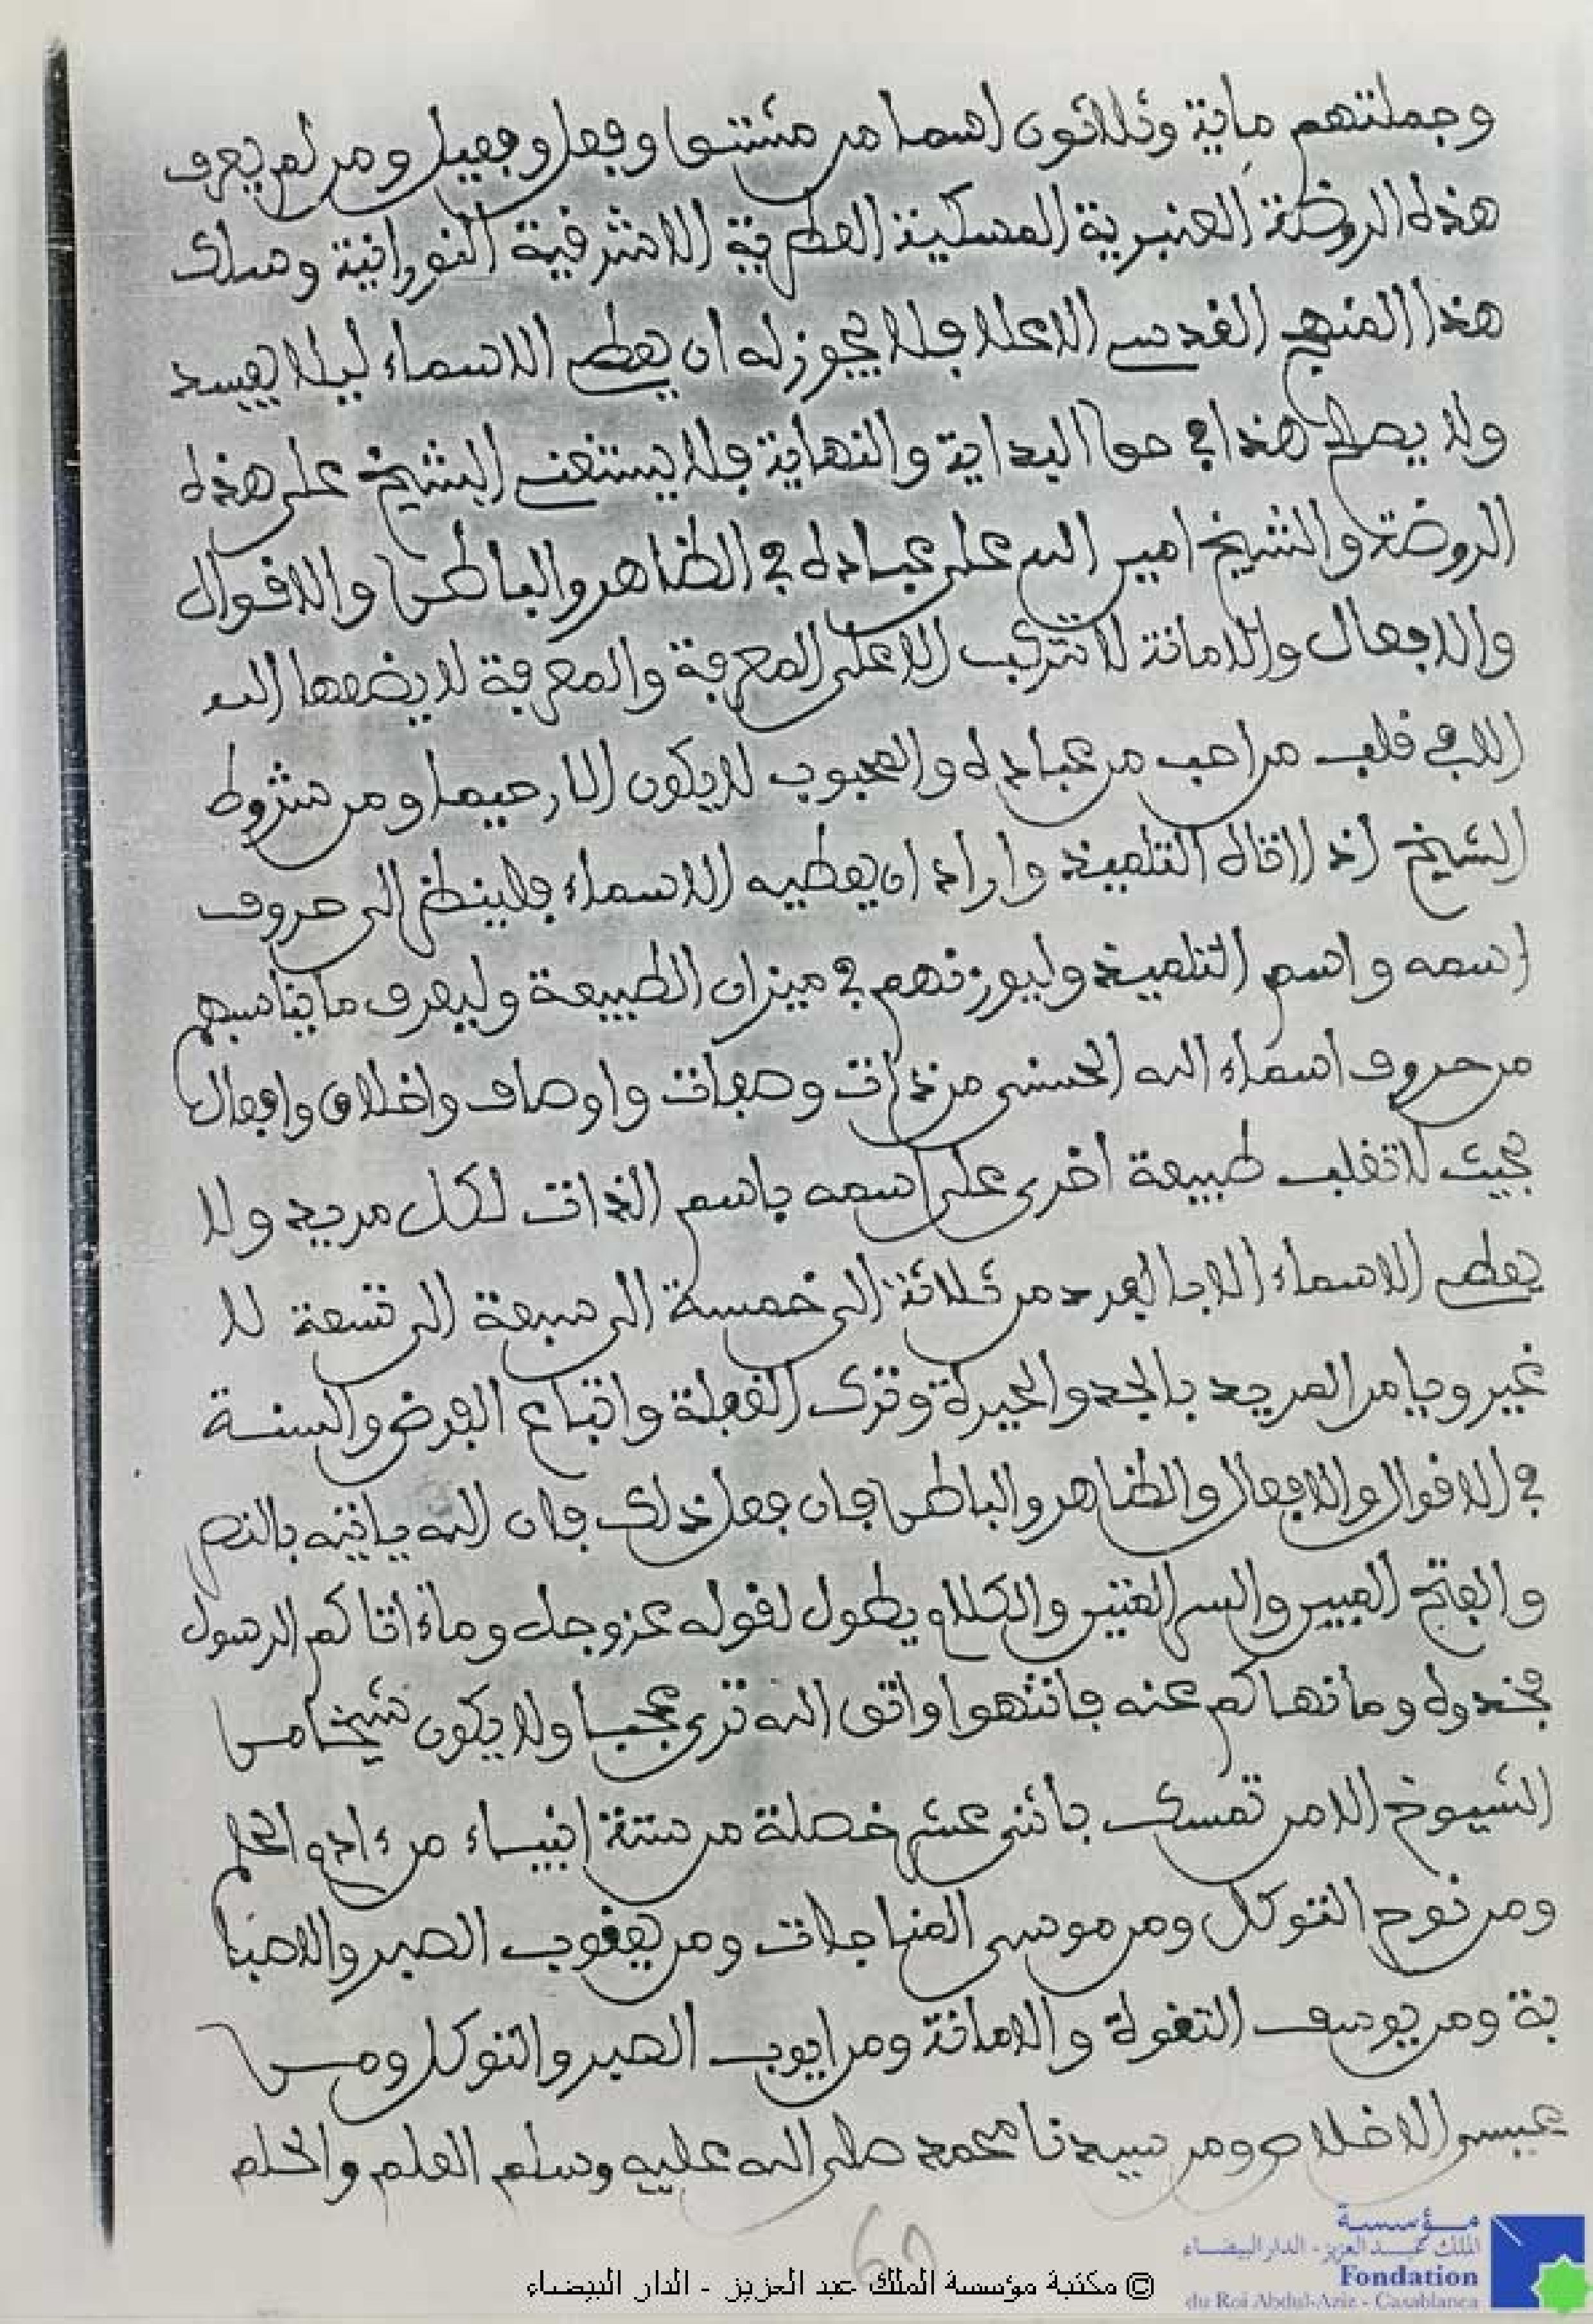 وجملتهم ماية وثلاثون اسما من مشتو وفعل وفعيل ومن لم يعرف
هذه الروضة العنبرية المسكية العطرية الاشرفية النورانية وسلك
هذا المنهج القدسي الاعلا فلا يجوز له ان يعطي الاسماء ليلا يفسد
ولا يصلح هذا في حق البداية والنهاية فلا يستغني الشيخ على هذه
الروضة والشيخ امين الله على عباده في الظاهر والباطن والاقوال
والافعال والامانة لا تتركب الا على المعرفة والمعرفة لا يضعها الله
الا في قلب من احب من عباده والمحبوب لا يكون الا رحيما ومن شروط
الشيخ اذا اتاه التلميذ واراد ان يعطيه الاسماء فلينظر الى حروف
اسمه واسم التلميذ وليوزنهم في ميزان الطبيعة وليعرف ما يناسبهم
من حروف اسماء الله الحسنى من ذات وصفات واوصاف واخلاق وافعال
بحيث لا تغلب طبيعة اخرى على اسمه باسم الذات لكل مريد ولا
يعطي الاسماء الا بالفرد من ثلاثة الى خمسة الى سبعة الى تسعة لا
غير ويامر المريد بالجد والحيرة وترك الغفلة واتباع الفرض والسنة
في الاقوال والافعال والظاهر والباطن فان فعل ذلك فان الله ياتيه بالنصر
والفتح المبين والسر المتين والكلام يطول لقوله عز وجل وماء اتاكم الرسول
فخذوه وما نهاكم عنه فانتهوا واتق الله ترى عجبا ولا يكون شيخا من
الشيوخ الا من تمسك باثنى عشر خصلة من ستة انبياء من ءادم الحلم
ومن نوح التوكل ومن موسى المناجات ومن يعقوب الصبر والاصا
بة ومن يوسف التقوة والامانة ومن ايوب الصبر والتوكل ومن
عيسى الاخلاص ومن سيدنا محمد صلى الله عليه وسلم العلم والحلم
60
© مكتبة مؤسسة الملك عبد العزيز - الدار البيضاء
مؤسسة
الملك عبد العزيز - الدار البيضاء
Fondation
du Roi Abdul-Aziz - Casablanca